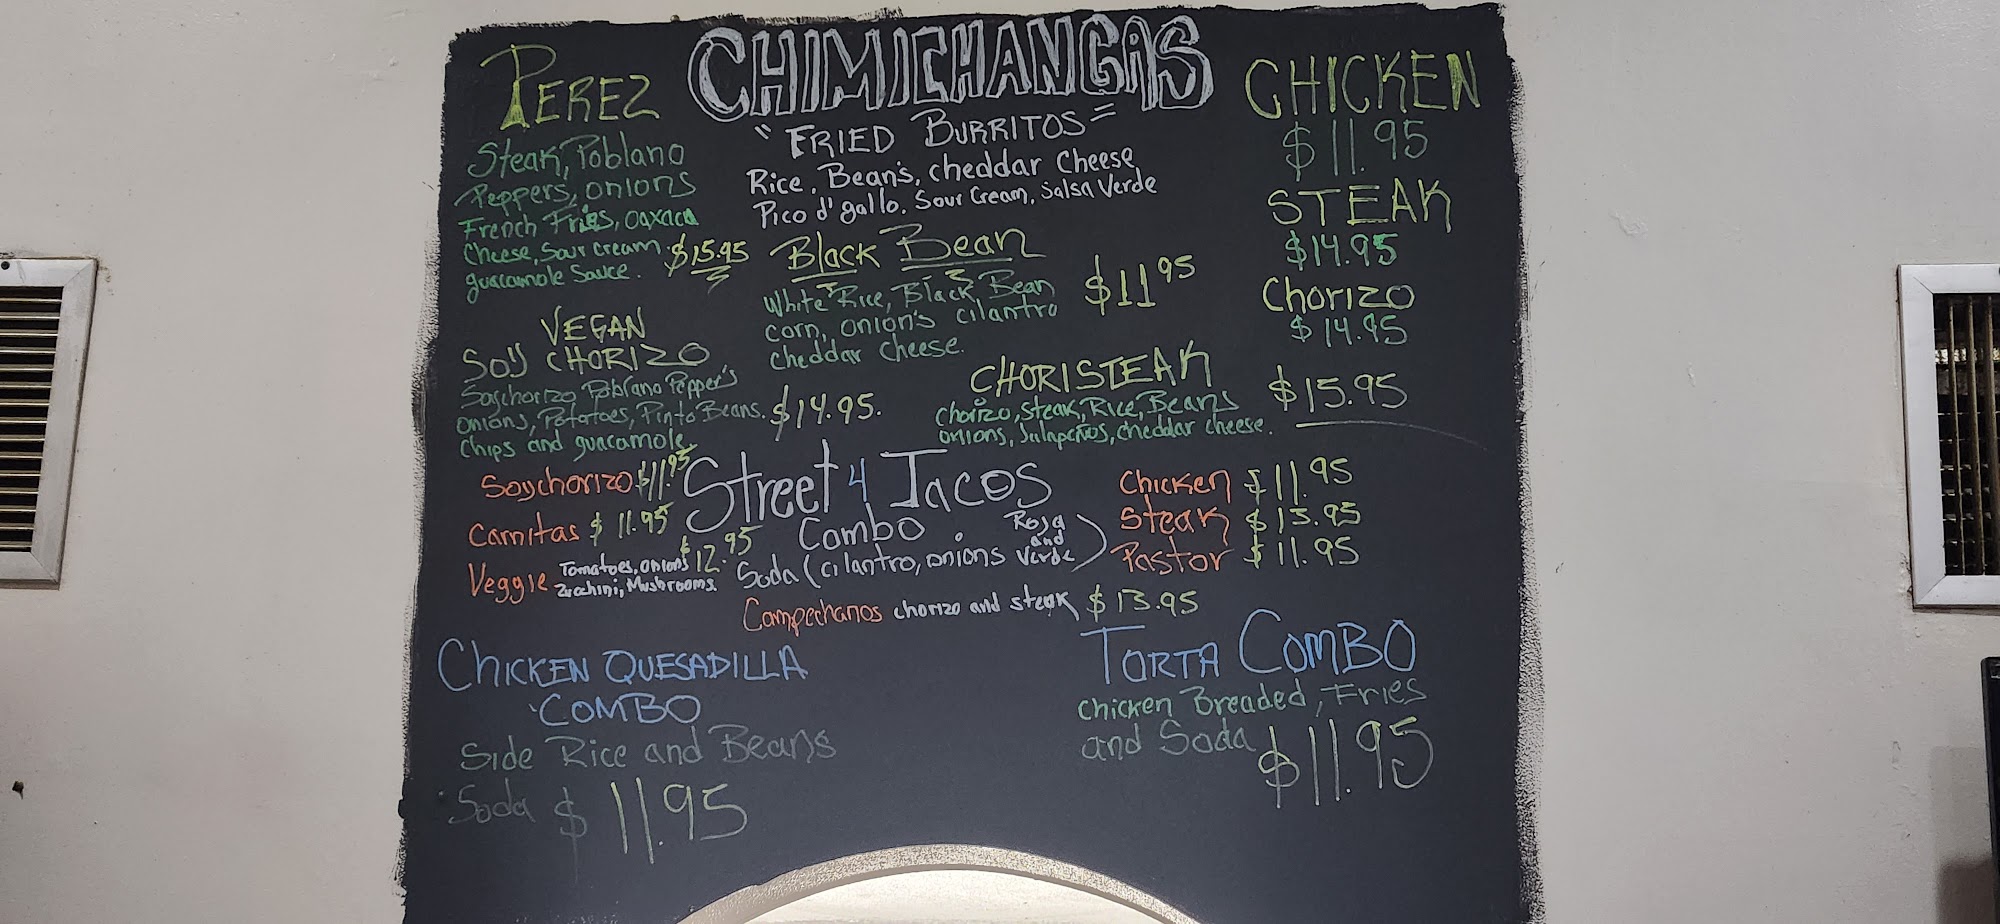 CHIMICHANGAS
"FRIED BURRITOS"
Rice, Bean's, cheddar Cheese
Pico d' gallo. Sour Cream, Salsa Verde
PEREZ
Steak, Poblano
Peppers, onions
French Fries, Oaxaca
Cheese, Sour cream.
guacamole Sauce. $15.95
VEGAN
SOY CHORIZO
Soychorizo, Poblano Pepper's
onions, Potatoes, Pinto Beans. $14.95.
Chips and guacamole
Black Bean
White Rice, Black Bean
corn, onion's cilantro
cheddar cheese.
$11 95
CHICKEN
$11.95
STEAK
$14.95
Chorizo
$14.95
CHORISTEAK
chorizo, steak, Rice, Beans
onions, Jalapeños, cheddar cheese.
$15.95
Street 4 Tacos
Combo
Soda (cilantro, onions Roja and Verde)
Soychorizo $11.95
Carnitas $11.95
Veggie Tomatoes, onions
Zucchini, Mushrooms. $12.95
Chicken $11.95
Steak $13.95
Pastor $11.95
Campechanos chorizo and steak $13.95
CHICKEN QUESADILLA
COMBO
Side Rice and Beans
Soda $11.95
TORTA COMBO
chicken Breaded, Fries
and Soda $11.95